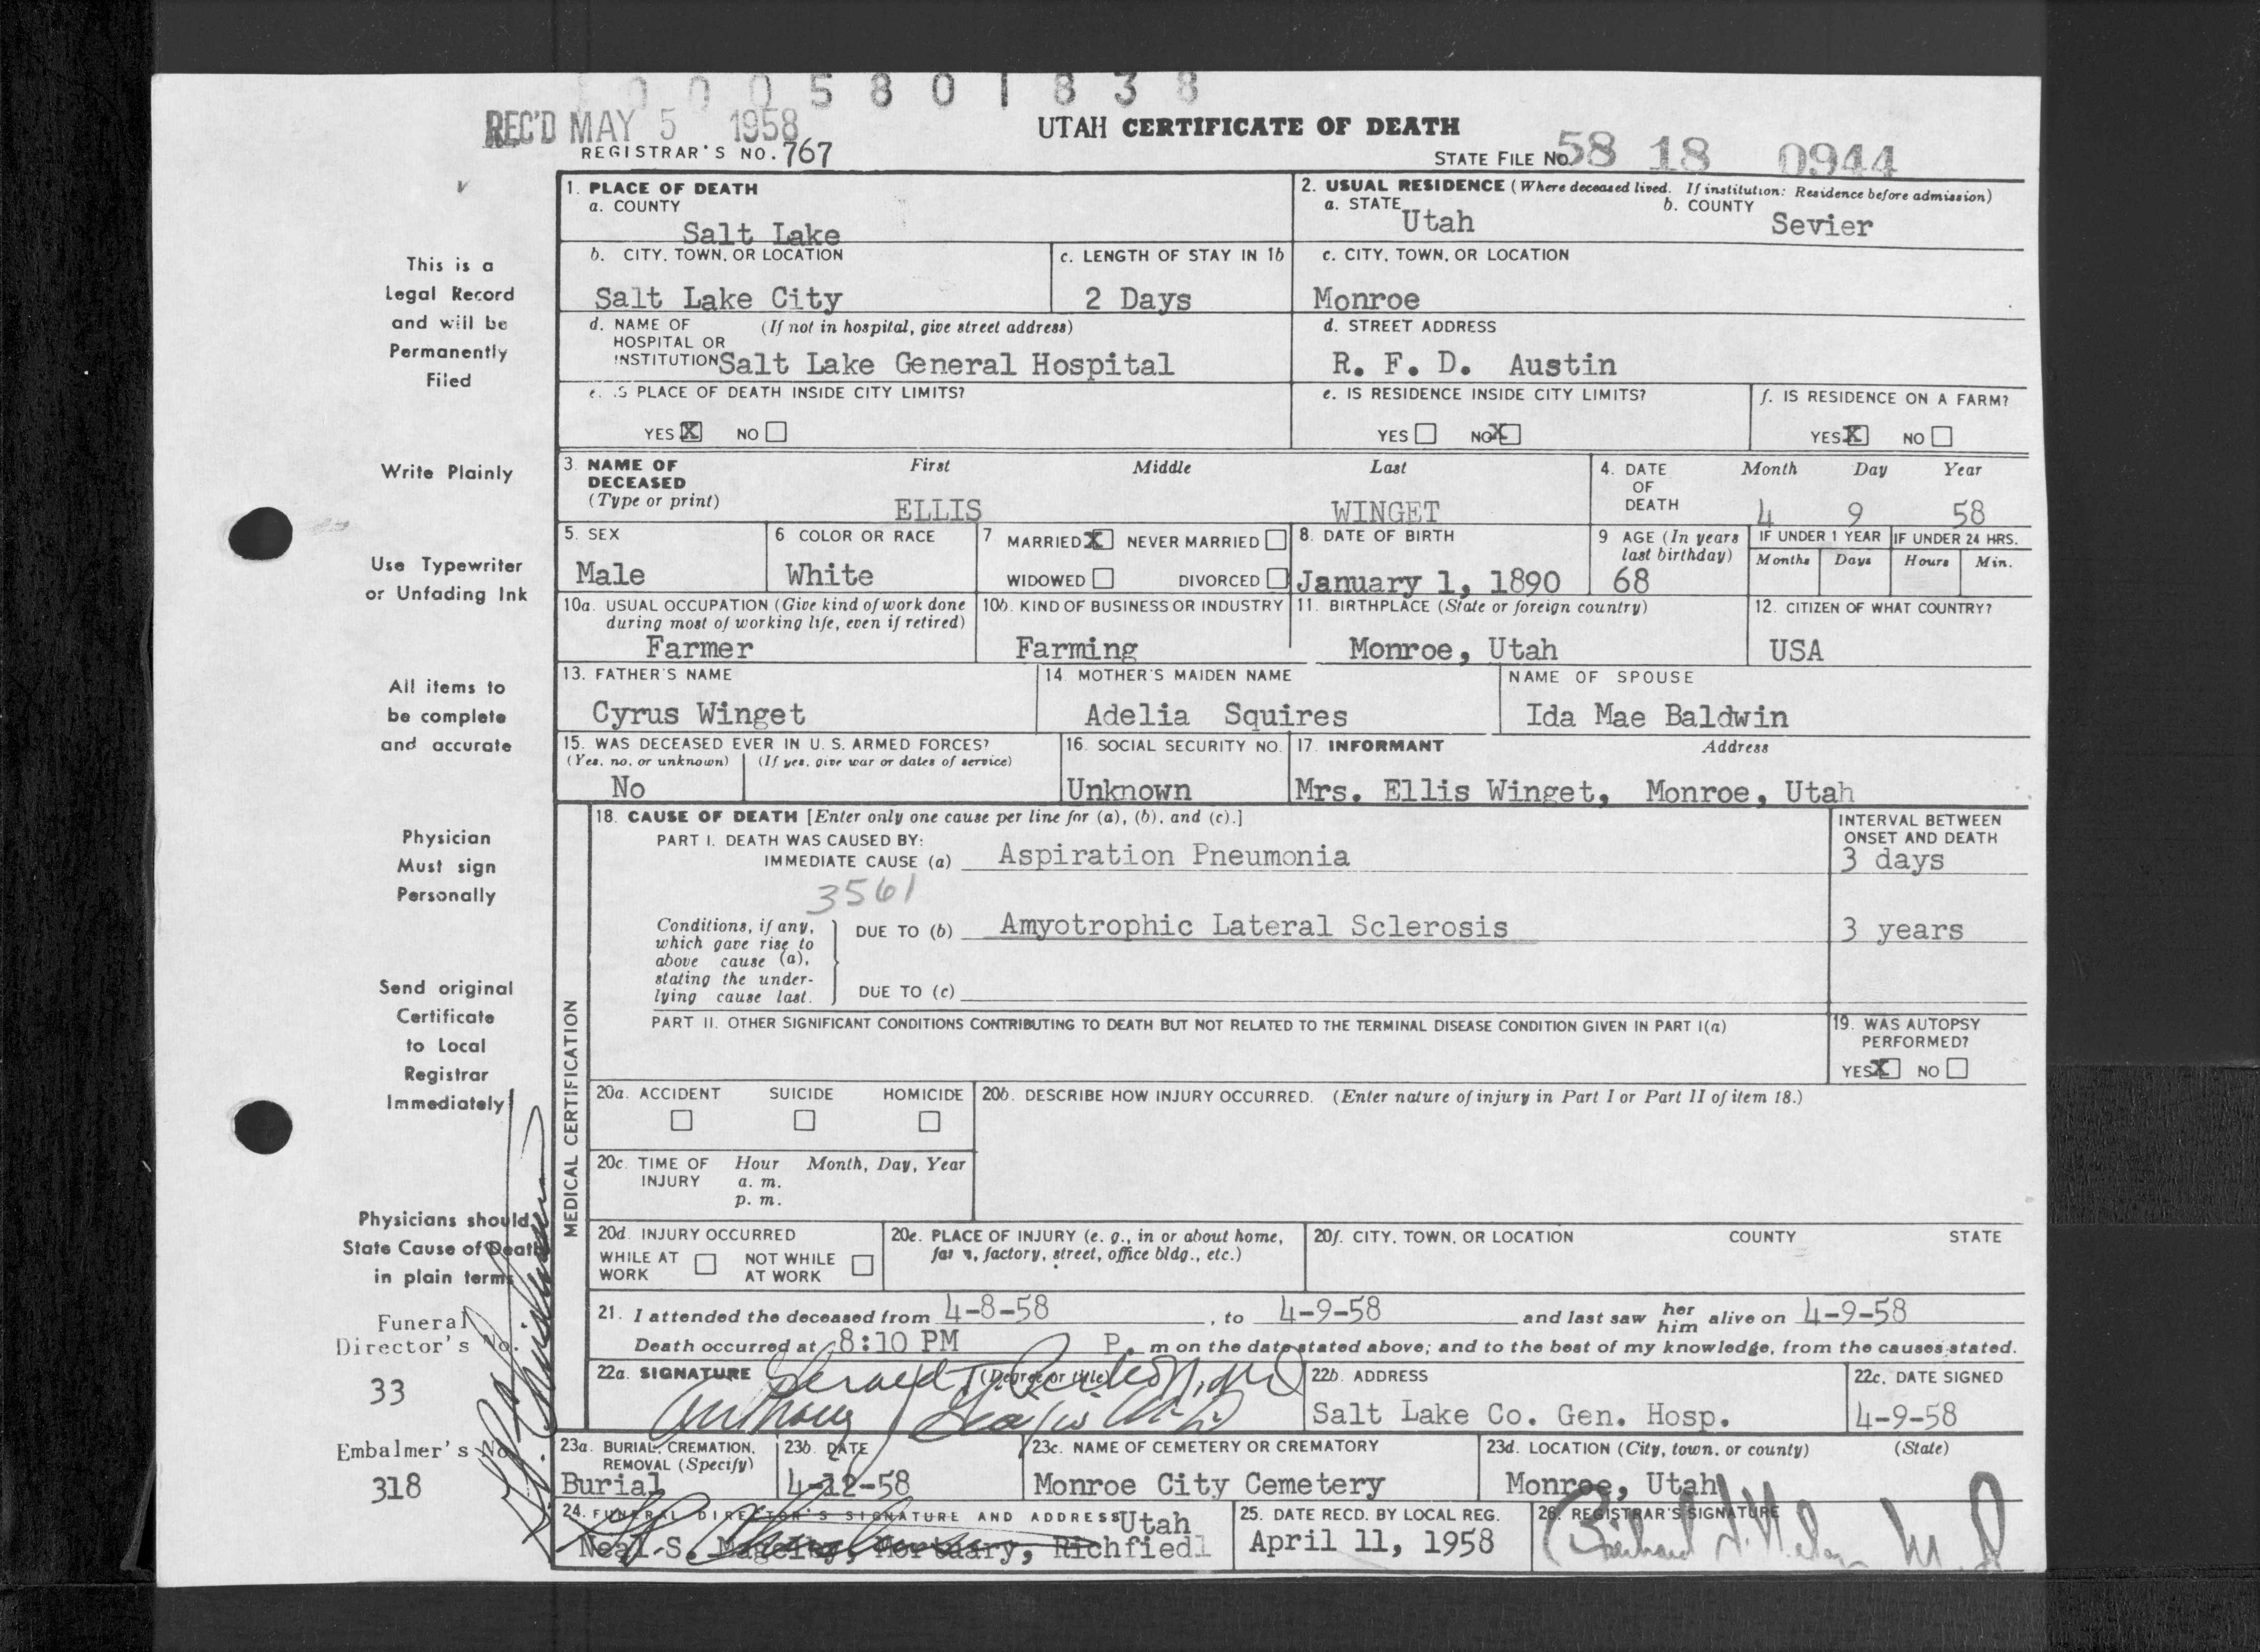 0005801838
REC'D MAY 5 1958
UTAH CERTIFICATE OF DEATH
REGISTRAR'S NO. 767
STATE FILE No. 58 18 0944
This is a
Legal Record
and will be
Permanently
Filed
Write Plainly
Use Typewriter
or Unfading Ink
All items to
be complete
and accurate
Physician
Must sign
Personally
Send original
Certificate
to Local
Registrar
Immediately
Physicians should
State Cause of Death
in plain terms
Funeral
Director's No.
33
Embalmer's No.
318
1. PLACE OF DEATH
a. COUNTY
Salt Lake
2. USUAL RESIDENCE (Where deceased lived. If institution: Residence before admission)
a. STATE Utah b. COUNTY Sevier
b. CITY, TOWN, OR LOCATION
Salt Lake City
c. LENGTH OF STAY IN 1b
2 Days
c. CITY, TOWN, OR LOCATION
Monroe
d. NAME OF (If not in hospital, give street address)
HOSPITAL OR
INSTITUTION Salt Lake General Hospital
d. STREET ADDRESS
R. F. D. Austin
e. IS PLACE OF DEATH INSIDE CITY LIMITS?
YES X NO
e. IS RESIDENCE INSIDE CITY LIMITS?
YES NO X
f. IS RESIDENCE ON A FARM?
YES X NO
3. NAME OF DECEASED
(Type or print)
First Middle Last
ELLIS WINGET
4. DATE OF DEATH
Month Day Year
4 9 58
5. SEX
Male
6 COLOR OR RACE
White
7 MARRIED X NEVER MARRIED
WIDOWED DIVORCED
8. DATE OF BIRTH
January 1, 1890
9 AGE (In years last birthday)
68
IF UNDER 1 YEAR
Months Days
IF UNDER 24 HRS.
Hours Min.
10a. USUAL OCCUPATION (Give kind of work done
during most of working life, even if retired)
Farmer
10b. KIND OF BUSINESS OR INDUSTRY
Farming
11. BIRTHPLACE (State or foreign country)
Monroe, Utah
12. CITIZEN OF WHAT COUNTRY?
USA
13. FATHER'S NAME
Cyrus Winget
14. MOTHER'S MAIDEN NAME
Adelia Squires
NAME OF SPOUSE
Ida Mae Baldwin
15. WAS DECEASED EVER IN U. S. ARMED FORCES?
(Yes, no, or unknown) (If yes, give war or dates of service)
No
16. SOCIAL SECURITY NO.
Unknown
17. INFORMANT Address
Mrs. Ellis Winget, Monroe, Utah
MEDICAL CERTIFICATION
18. CAUSE OF DEATH [Enter only one cause per line for (a), (b), and (c).]
PART I. DEATH WAS CAUSED BY:
IMMEDIATE CAUSE (a) Aspiration Pneumonia
INTERVAL BETWEEN
ONSET AND DEATH
3 days
3561
Conditions, if any,
which gave rise to
above cause (a),
stating the under-
lying cause last.
DUE TO (b) Amyotrophic Lateral Sclerosis
3 years
DUE TO (c)
PART II. OTHER SIGNIFICANT CONDITIONS CONTRIBUTING TO DEATH BUT NOT RELATED TO THE TERMINAL DISEASE CONDITION GIVEN IN PART I(a)
19. WAS AUTOPSY
PERFORMED?
YES X NO
20a. ACCIDENT SUICIDE HOMICIDE
20b. DESCRIBE HOW INJURY OCCURRED. (Enter nature of injury in Part I or Part II of item 18.)
20c. TIME OF INJURY
Hour Month, Day, Year
a. m.
p. m.
20d. INJURY OCCURRED
WHILE AT WORK NOT WHILE AT WORK
20e. PLACE OF INJURY (e. g., in or about home,
farm, factory, street, office bldg., etc.)
20f. CITY, TOWN, OR LOCATION COUNTY STATE
21. I attended the deceased from 4-8-58, to 4-9-58 and last saw her him alive on 4-9-58
Death occurred at 8:10 PM P. m on the date stated above; and to the best of my knowledge, from the causes stated.
22a. SIGNATURE (Degree or title)
Anthony
22b. ADDRESS
Salt Lake Co. Gen. Hosp.
22c. DATE SIGNED
4-9-58
23a. BURIAL, CREMATION,
REMOVAL (Specify)
Burial
23b. DATE
4-12-58
23c. NAME OF CEMETERY OR CREMATORY
Monroe City Cemetery
23d. LOCATION (City, town, or county) (State)
Monroe, Utah
24. FUNERAL DIRECTOR'S SIGNATURE AND ADDRESS Utah
Neal S. Mortuary, Richfiedl
25. DATE RECD. BY LOCAL REG.
April 11, 1958
26. REGISTRAR'S SIGNATURE